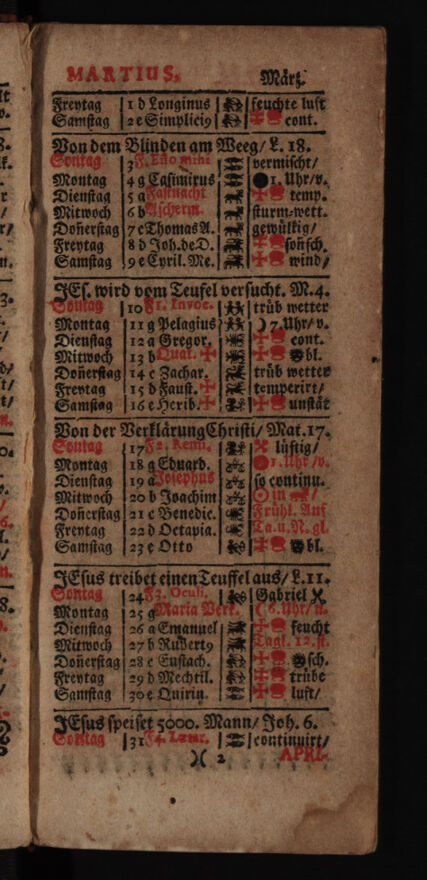 MARTIUS. Märtz.
Freytag 1 d Longinus feuchte luft
Samstag 2 e Simplici9 cont.
Von dem Blinden am Weeg / L. 18.
Sontag 3 F. Esto mihi vermischt /
Montag 4 g Casimirus 1. Uhr / v.
Dienstag 5 a Fastnacht temp.
Mitwoch 6 b Ascherm. sturm-wett.
Doñerstag 7 c Thomas A. gewülkig /
Freytag 8 d Joh. de D. soñsch.
Samstag 9 e Cyril. Me. wind /
JEs. wird vom Teufel versucht. M. 4.
Sontag 10 F 1. Invoc. trüb wetter
Montag 11 g Pelagius 7. Uhr / v.
Dienstag 12 a Gregor. cont.
Mitwoch 13 b Quat. bl.
Doñerstag 14 c Zachar. trüb wetter
Freytag 15 d Faust. temperirt /
Samstag 16 e Herib. unstät
Von der Verklärung Christi / Mat. 17.
Sontag 17 F 2. Remi. lüftig /
Montag 18 g Eduard. 1. Uhr / v.
Dienstag 19 a Josephus so continu.
Mitwoch 20 b Joachim in
Doñerstag 21 c Benedic. Frühl. Anf
Freytag 22 d Octavia. Ta. u. N. gl.
Samstag 23 e Otto bl.
JEsus treibet einen Teuffel aus / L. 11.
Sontag 24 F 3. Oculi. Gabriel
Montag 25 g Maria Verk. 6. Uhr / n.
Dienstag 26 a Emanuel feucht
Mitwoch 27 b Rupert9 Tagl. 12. st.
Doñerstag 28 c Eustach. sch.
Freytag 29 d Mechtil. trübe
Samstag 30 e Quirin. luft /
JEsus speiset 5000. Mann / Joh. 6.
Sontag 31 F 4. Lætar. continuirt /
)( 2 APRI-